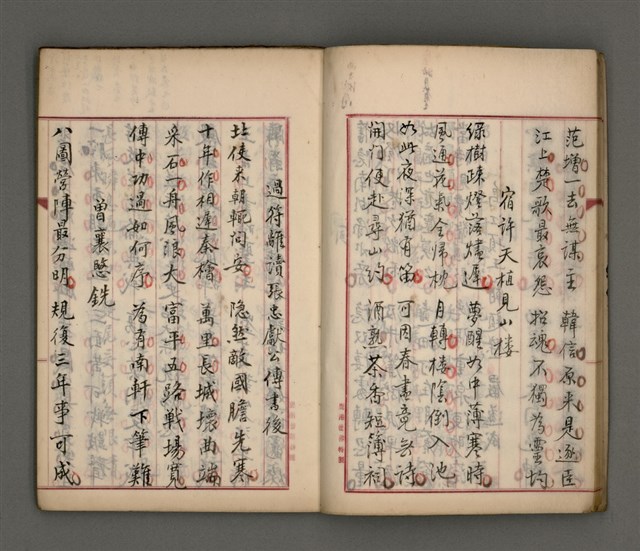 范增一去無謀主 韓信原來是逐臣
江上楚歌最哀怨 招魂不獨為靈均
宿許天植見山樓
綠樹疎燈落燼遲 夢醒如中薄寒時
風通花氣全歸枕 月轉樓陰倒入池
如此夜深猶有笛 可因春盡竟無詩
開門便赴尋山約 酒熟茶香短簿祠
過符離讀張忠獻公傳書後
北使來朝輒問安 隐然敵國膽先寒
十年作相遲秦檜 萬里長城壞曲端
采石一舟風浪大 富平五路戰場寬
傳中功過如何序 為有南軒下筆難
曾襄愍銑
八圖營陣最分明 規復三年事可成